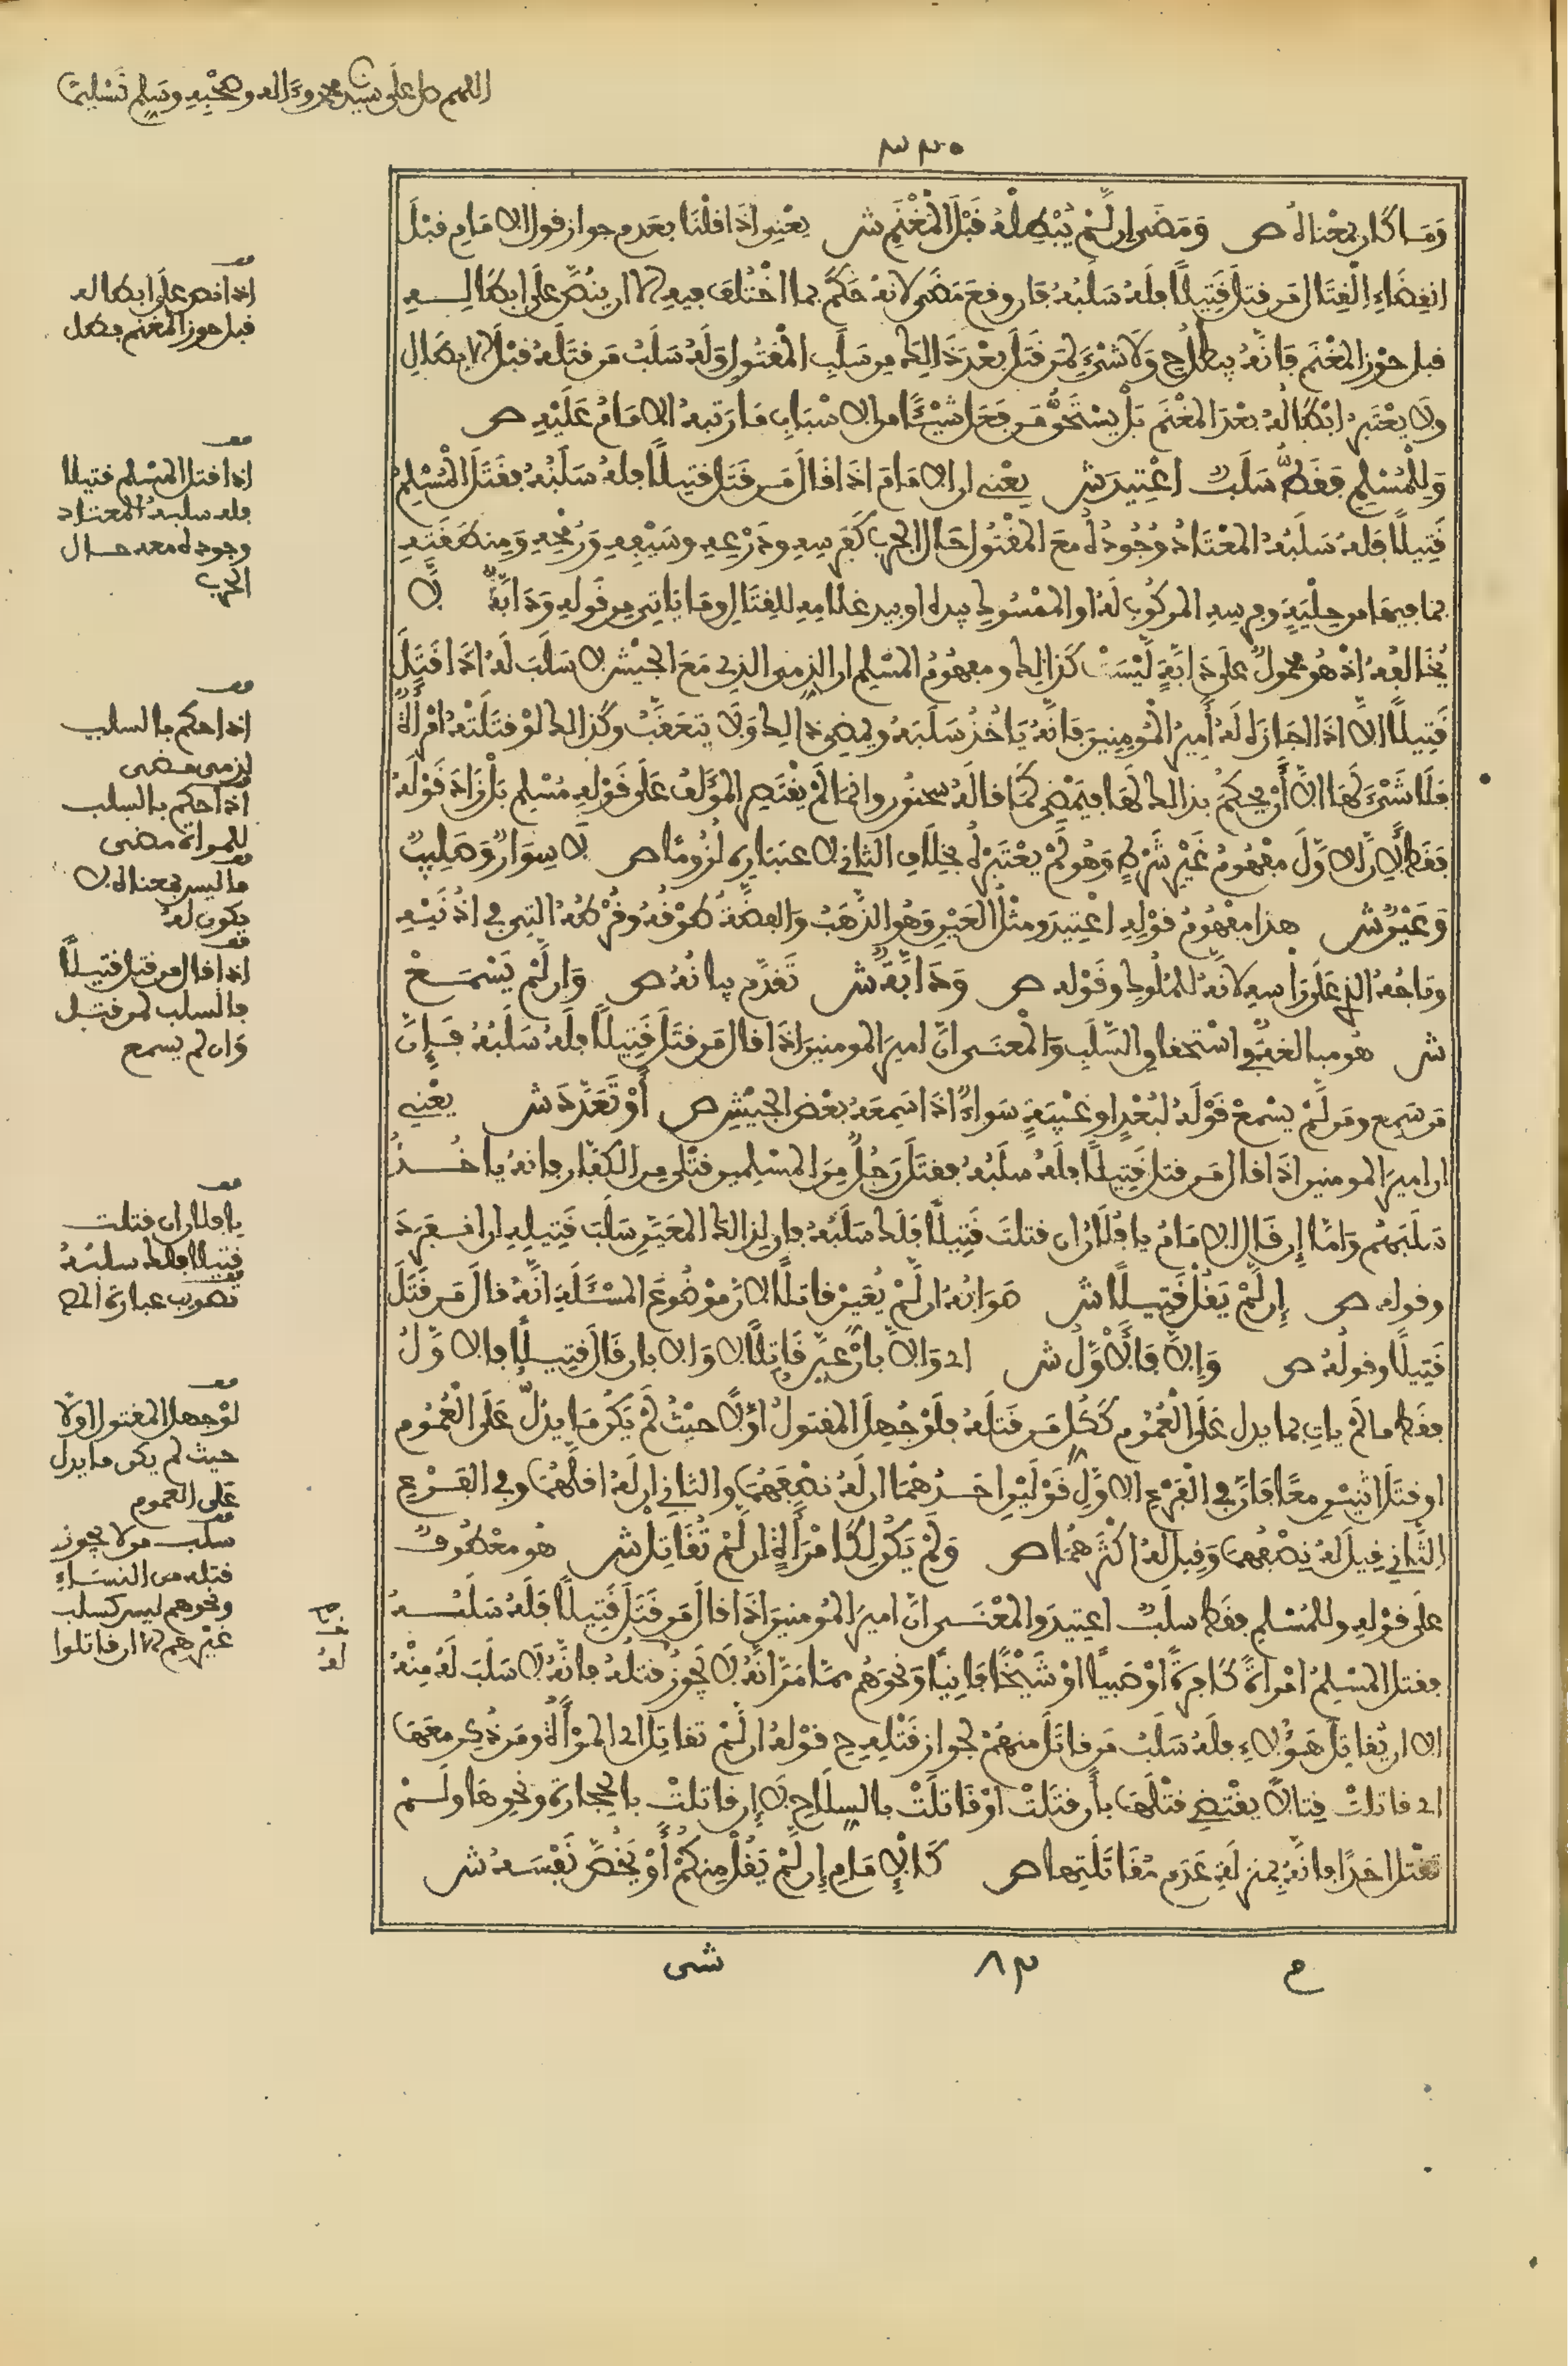 اللهم صل على سيدنا محمد وءاله وصحبه وسلم تسليما
وما كان بمعناه ص ومضى إن لم يبطله قبل المغنم ش يعني إذا قلنا بعدم جواز قول الإمام قبل
انقضاء القتال من قتل قتيلا فله سلبه فإن وقع مضى لأنه حكم بما اختلف فيه إلا أن ينص على إبطاله
قبل حوز المغنم فإنه يبطل ح ولا شيء لمن قتل بعد ذلك من سلب المقتول وله سلب من قتله قبل الإبطال
ولا يعتبر إبطاله بعد المغنم بل يستحق من فعل شيئا من الأسباب ما رتبه الإمام عليه ص
وللمسلم فقط سلب اعتيد ش يعني أن الإمام إذا قال من قتل قتيلا فله سلبه فقتل المسلم
قتيلا فله سلبه المعتاد وجوده مع المقتول حال الحرب كفرسه ودرعه وسيفه ورمحه ومنطقته
بما فيها من حلية وفرسه المركوب له أو الممسوك بيده أو بيد غلامه للقتال وما ياتي من قوله ودابة لا
يخالفه إذ هو محمول على دابة ليست كذلك ومفهوم المسلم أن الذمي الذي مع الجيش لا سلب له إذا قتل
قتيلا إلا إذا أجازه له أمير المومنين فإنه ياخذ سلبه ويمضي ذلك ولا يتعقب وكذلك لو قتلته امرأة
فلا شيء لها إلا أن يحكم بذلك لها فيمضي كما قاله سحنون وإنما لم يقتصر المؤلف على قوله مسلم بل زاد قوله
فقط لأن الأول مفهوم غير شرط وهو لم يعتبره بخلاف الثاني لاعتباره لزوما ص لا سوار وصليب
وعين ش هذا مفهوم قوله اعتيد ومثل العين وهو الذهب والفضة طوقه وقرطه التي في أذنيه
وتاجه الذي على رأسه لأنه للملوك وقوله ص ودابة ش تقدم بيانه ص وإن لم يسمع
ش هو مبالغة في استحقاق السلب والمعنى أن أمير المومنين إذا قال من قتل قتيلا فله سلبه فإن
من سمع ومن لم يسمع قوله لبعد أو غيبة سواء إذا سمعه بعض الجيش ص أو تعدد ش يعني
أن أمير المومنين إذا قال من قتل قتيلا فله سلبه فقتل رجل من المسلمين قتلى من الكفار فإنه ياخذ
سلبهم وأما إن قال الإمام يا فلان إن قتلت قتيلا فلك سلبه فإن لذلك المعين سلب قتيله إن انفرد
وقوله ص إن لم يقل قتيلا ش صوابه إن لم يعين قاتلا لأن موضوع المسئلة أنه قال من قتل
قتيلا وقوله ص وإلا فالأول ش أي وإلا بأن عين قاتلا لا وإلا بأن قال قتيلا فالأول
فقط ما لم يات بما يدل على العموم ككل من قتله فلو جهل المقتول أولا حيث لم يكن ما يدل على العموم
أو قتل اثنين معا فإن في الفرع الأول قولين أحدهما أن له نصفهما والثاني أن له أقلهما وفي الفرع
الثاني قيل له نصفهما وقيل له أكثرهما ص ولم يكن لكامرأة إن لم تقاتل ش هو معطوف
على قوله وللمسلم فقط سلب اعتيد والمعنى أن أمير المومنين إذا قال من قتل قتيلا فله سلبه
فقتل المسلم امرأة كافرة أو صبيا أو شيخا فانيا ونحوهم مما مر أنه لا يجوز قتله فإنه لا سلب له منه
إلا أن يقاتل هؤلاء فله سلب من قاتل منهم لجواز قتله ح قوله إن لم تقاتل أي المرأة ومن ذكر معها
أي قاتلت قتالا يقتضي قتلها بأن قتلت أو قاتلت بالسلاح لا إن قاتلت بالحجارة ونحوها ولم
تقتل أحدا فإنه بمنزلة عدم مقاتلتها ص كالإمام إن لم يقل منكم أو يخص نفسه ش
إذا نص على إبطاله
قبل حوز المغنم بطل
إذا قتل المسلم قتيلا
فله سلبه المعتاد
وجوده معه حال
الحرب
إذا حكم بالسلب
لذمي مضى
إذا حكم بالسلب
للمراة مضى
ما ليس بمعناه لا
يكون له
إذا قال من قتل قتيلا
فالسلب لمن قتل
وإن لم يسمع
يا فلان إن قتلت
قتيلا فلك سلبه
تصويب عبارة المص
لو جهل المقتول أولا
حيث لم يكن ما يدل
على العموم
سلب من لا يجوز
قتله من النساء
ونحوهم ليس كسلب
غيرهم إلا إن قاتلوا